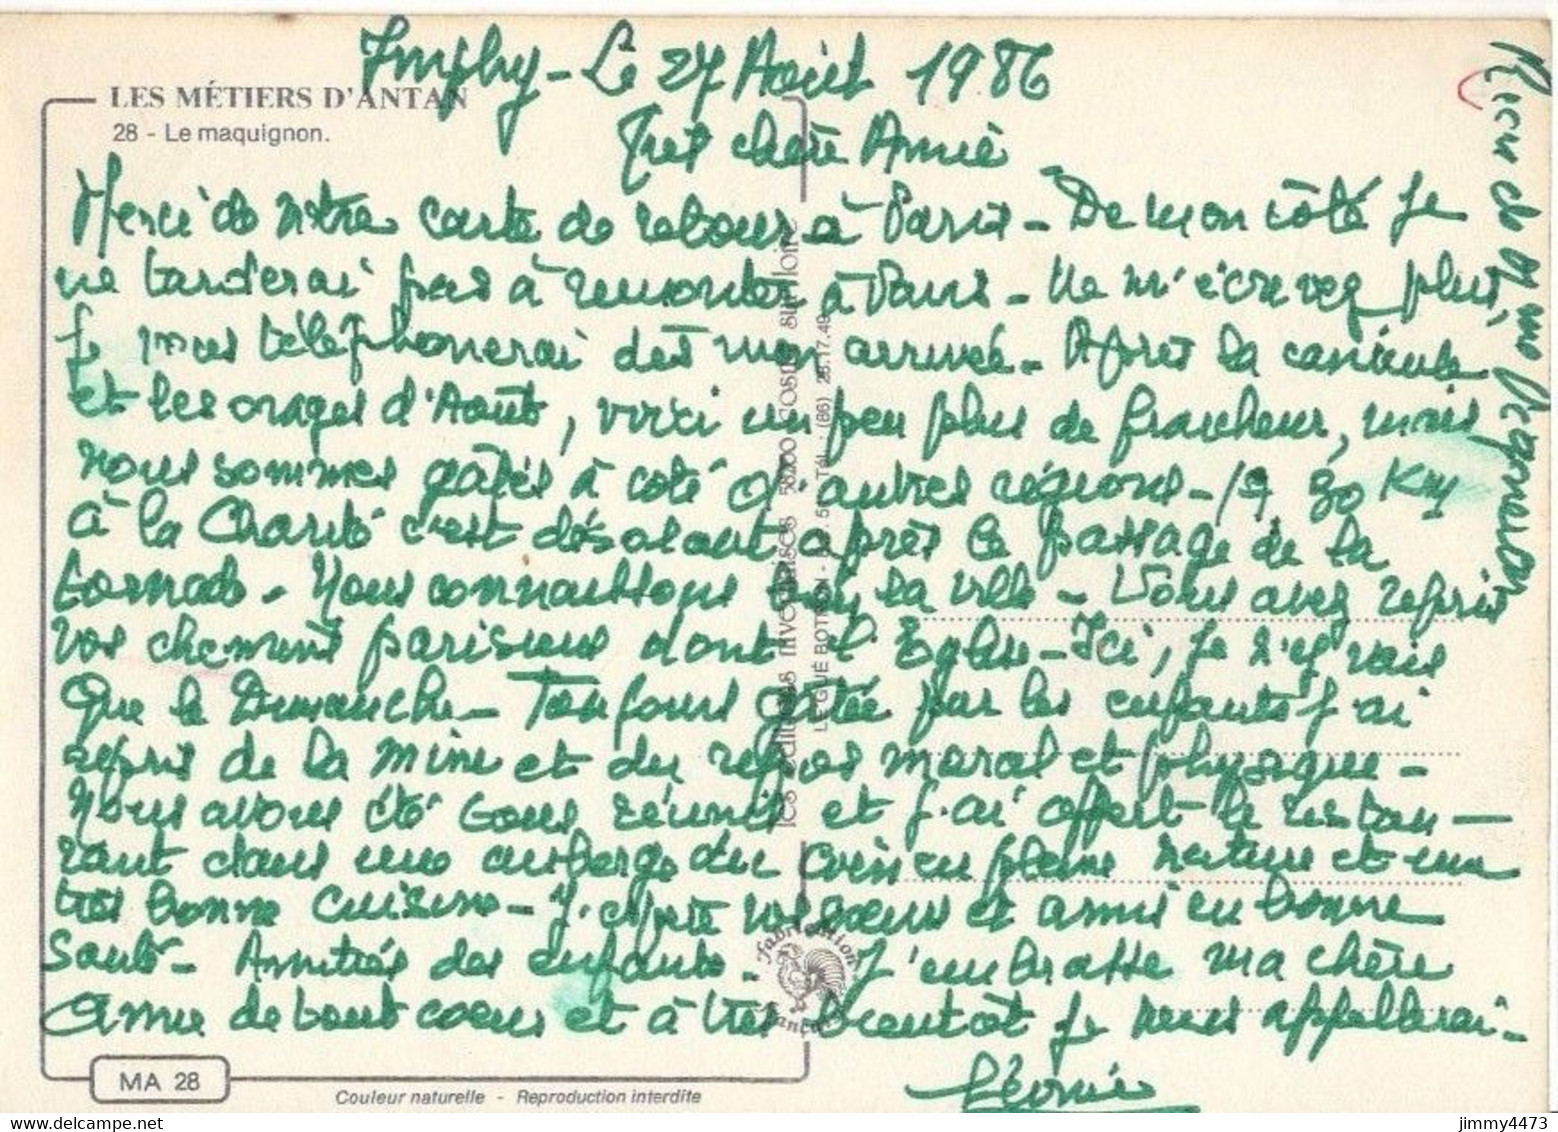 Imphy - Le 27 Août 1986
LES MÉTIERS D'ANTAN
28 - Le maquignon.
Très chère Amie
Merci de votre carte de retour à Paris - De mon côté je
ne tarderai pas à remonter à Paris - Ne m'écrivez plus,
je vous téléphonerai dès mon arrivée - Après la canicule
et les orages d'Août, voici un peu plus de fraicheur, mais
nous sommes gâtés à côté d'autres régions - 30 KM
à la Charité c'est désolant après le passage de la
tornade - Nous connaissons la ville - Vous avez repris
vos chemins parisiens dont l'Eglise - Ici, je n'y vais
que le Dimanche - Toujours gâtée par les enfants j'ai
repris de la mine et du repos moral et physique -
Nous avons été tous réunis et j'ai offert le restau-
rant dans une auberge du coin en pleine nature et une
très bonne cuisine - J'espère vos sœurs et amis en bonne
santé - Amitiés des enfants - J'embrasse ma chère
Amie de tout cœur et à très bientôt je vous appellerai -
Léonie
les éditions nivernaises 58200 cosne sur loire
LE GUÉ BOTTRON - TÉL : (86) 28.17.49
Fabrication
MA 28
Couleur naturelle - Reproduction interdite
jimmy4473